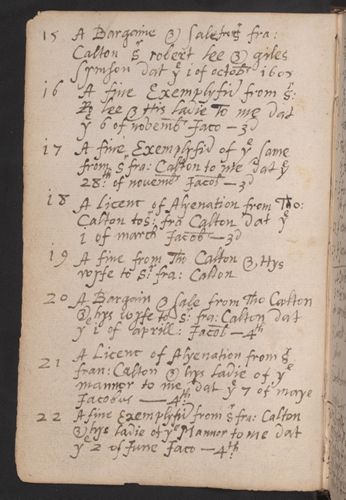 15 A Bargaine & Sale from Sr fra:
Calton Sr robert lee & giles
Symson dat ye 1 of octobr 160
16 A fine Exemplyfid from Sr:
Ro lee & His ladie To me dat
ye 6 of novemb Jaco — 3d
17 A fine Exemplyfid of ye same
from Sr fra: Calton to me dat ye
28th of novemr Jacob — 3d
18 A Licenc of Alyenation from Tho:
Calton to Sr fra Calton dat ye
1 of march Jacobi — 3d
19 A fine from Tho Calton & Hys
wyfe to Sr fra: Calton
20 A Bargain & Sale from Tho Calton
& hys wyfe to Sr fra: Calton dat
ye 1 of aprill: Jacob — 4th
21 A Licenc of Alyenation from Sr
fran: Calton & hys ladie of ye
mannor to me dat ye 7 of maye
Jacobus — 4th
22 A fine Exemplyfid from Sr fra: Calton
& hys ladie of ye Mannor to me dat
ye 2 of June Jaco — 4th